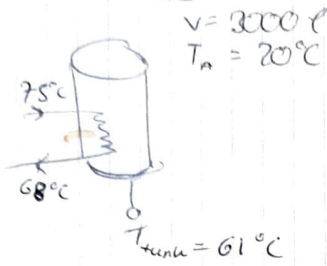 V = 3000 l
T_A = 20°C
75°C
68°C
T_tank = 61°C